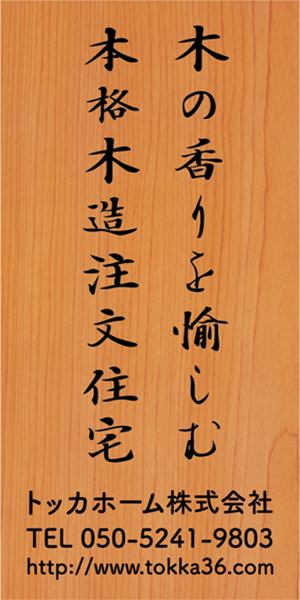 木の香りを愉しむ
本格木造注文住宅
トッカホーム株式会社
TEL 050-5241-9803
http://www.tokka36.com